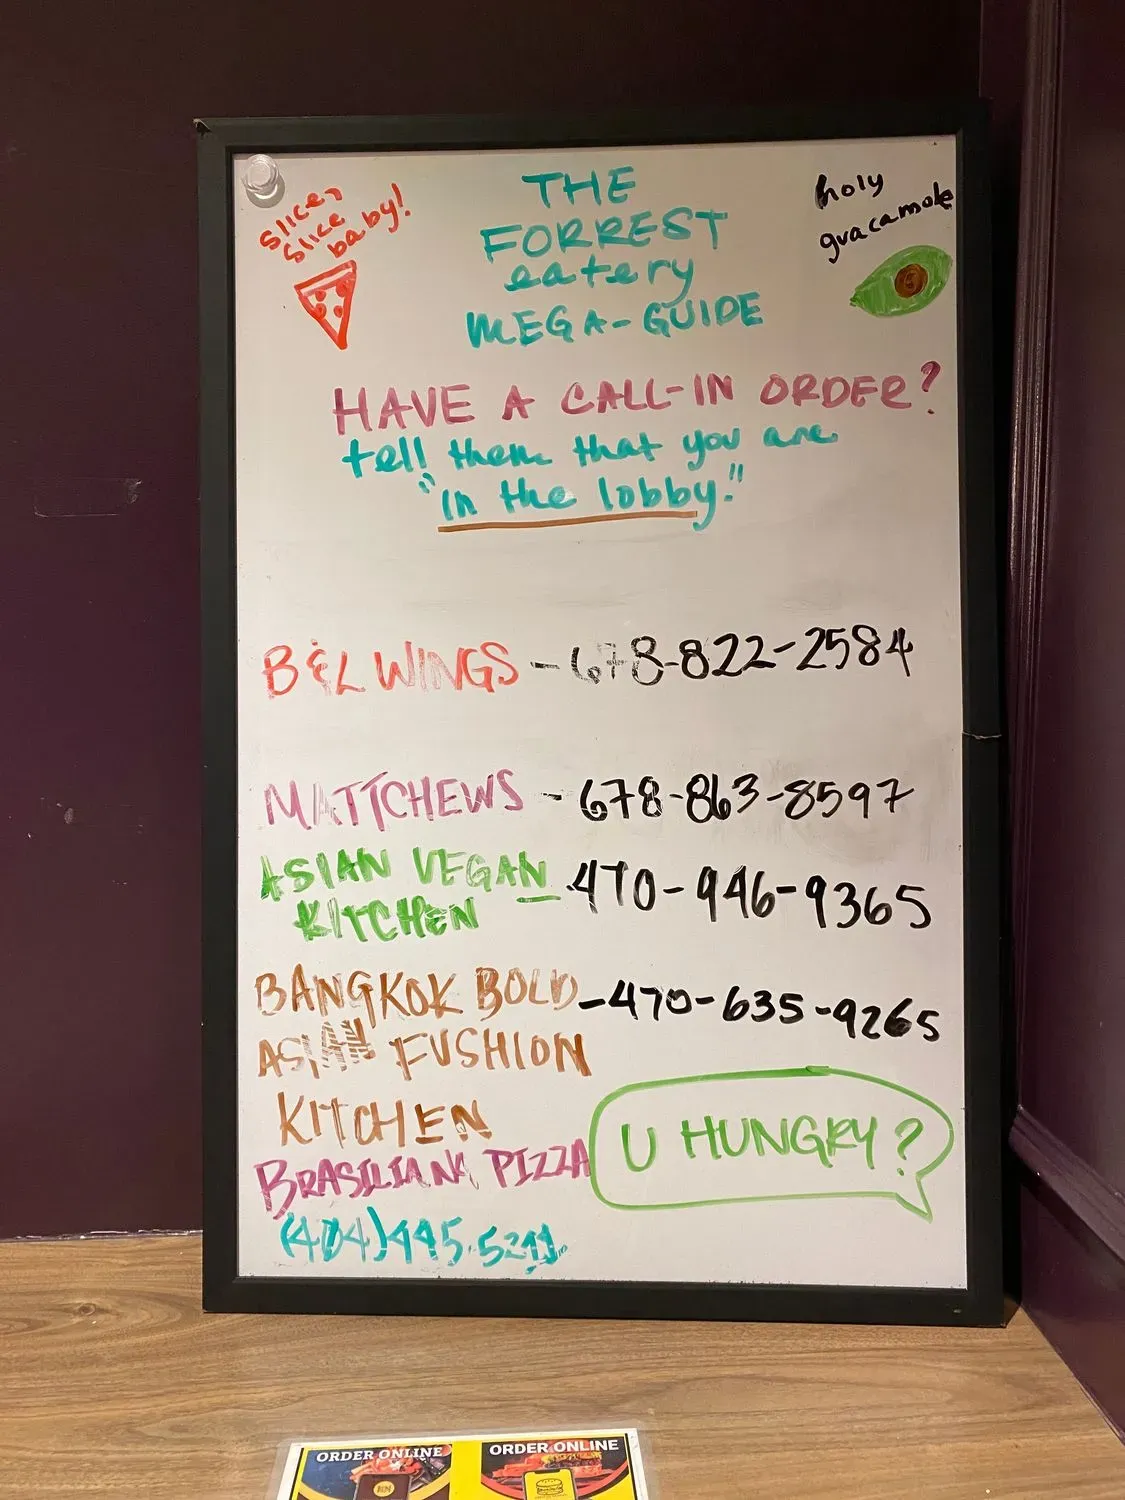 slice, slice baby!
holy guacamole
THE
FORREST
eatery
MEGA-GUIDE
HAVE A CALL-IN ORDER?
tell them that you are
"in the lobby."
B&L WINGS - 678-822-2584
MATTCHEWS - 678-863-8597
ASIAN VEGAN - 470-946-9365
KITCHEN
BANGKOK BOLD - 470-635-9265
ASIAN FUSHION
KITCHEN
U HUNGRY?
BRASILIAN PIZZA
(404)445.5211
ORDER ONLINE
ORDER ONLINE